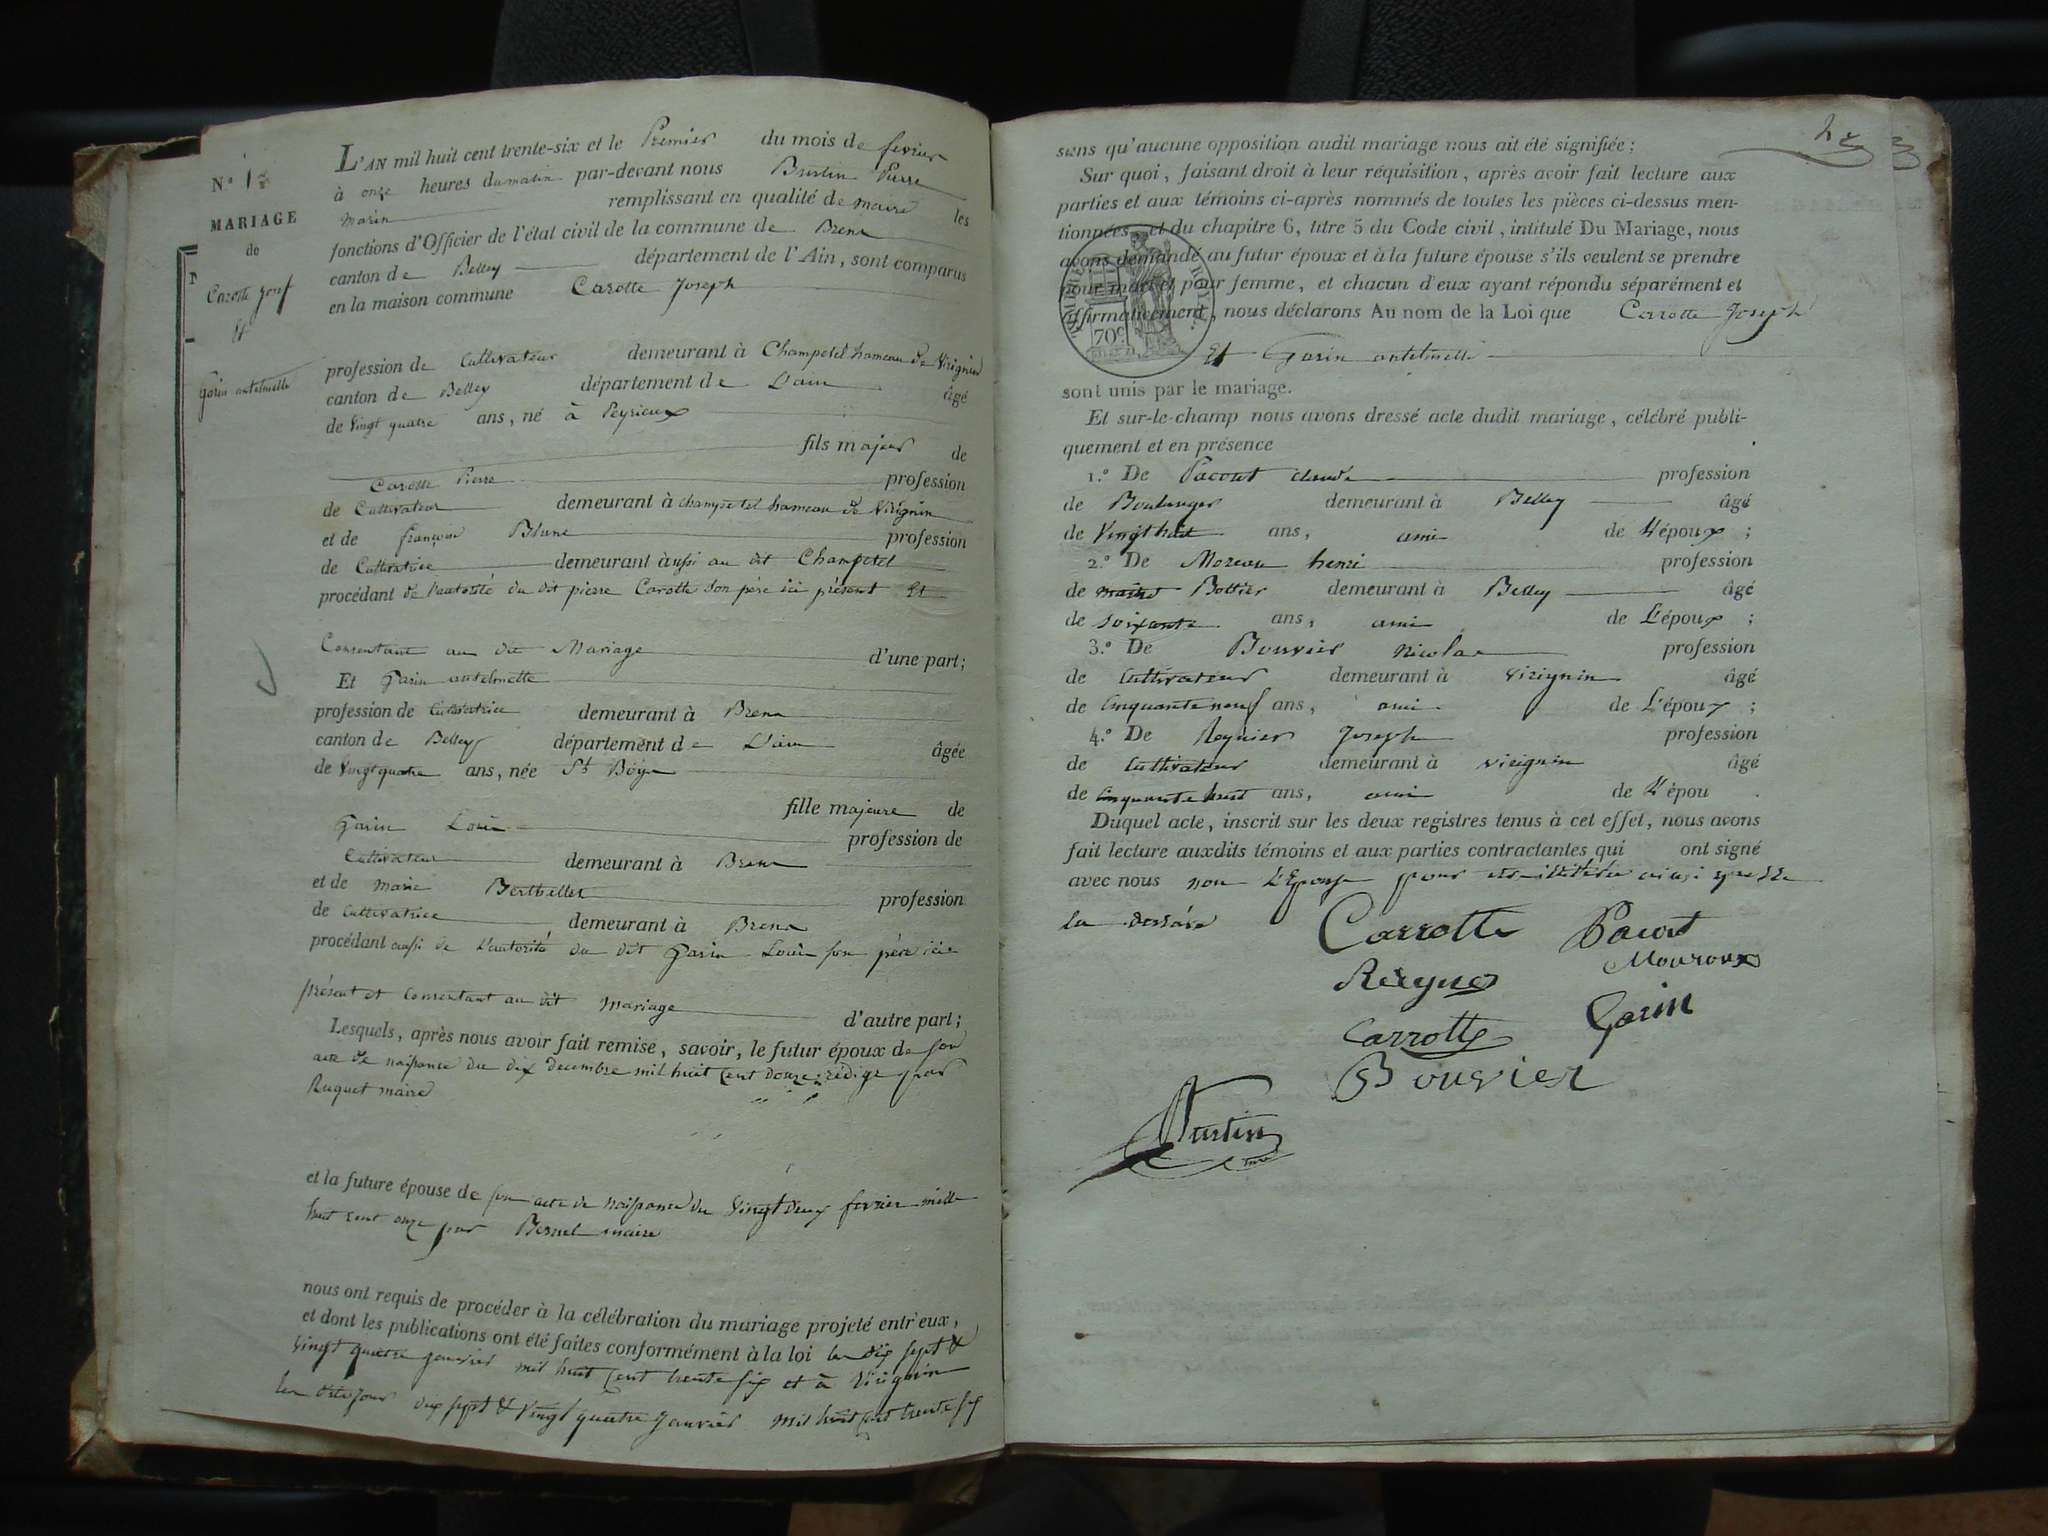 N° 1
MARIAGE
de
Carotte Josef
Et
Garin antelmette
L'AN mil huit cent trente-six et le Premier du mois de fevrier
à onze heures du matin par-devant nous Burtin Pierre
Marin remplissant en qualité de maire les
fonctions d'Officier de l'état civil de la commune de Brens
canton de Belley département de l'Ain, sont comparus
en la maison commune Carotte Joseph
profession de Cultivateur demeurant à Champetel hameau de Virignin
canton de Belley département de L'ain âgé
de Vingt quatre ans, né à Peyrieux
fils majeur de
Carotte Pierre profession
de Cultivateur demeurant à champetel hameau de Virignin
et de françoise Blanc profession
de Cultivatrice demeurant à aussi au dit Champetel
procédant de l'autorité du dit pierre Carotte son père ici présent Et
Consentant au dit Mariage d'une part;
Et Garin antelmette
profession de Cultivatrice demeurant à Brens
canton de Belley département de L'ain âgée
de Vingt quatre ans, née St Bóys
fille majeure de
Garin Louis profession de
Cultivateur demeurant à Brens
et de Marie Berthellet profession
de Cultivatrice demeurant à Brens
procédant aussi de L'autorité du dit Garin Louis son père ici
présent et Consentant au dit mariage d'autre part;
Lesquels, après nous avoir fait remise, savoir, le futur époux de son
acte de naissance du dix decembre mil huit cent douze rédigé par
Ruquet maire
et la future épouse de son acte de naissance du Vingt deux fevrier mille
huit cent onze par maire
nous ont requis de procéder à la célébration du mariage projeté entr'eux,
et dont les publications ont été faites conformément à la loi les dix sept &
Vingt quatre janvier mil huit cent trente six et à Virignin
les dits jour dix sept & Vingt quatre Janvier mil huit cent trente six
sans qu'aucune opposition audit mariage nous ait été signifiée;
Sur quoi, faisant droit à leur réquisition, après avoir fait lecture aux
parties et aux témoins ci-après nommés de toutes les pièces ci-dessus men-
tionnées et du chapitre 6, titre 5 du Code civil, intitulé Du Mariage, nous
avons demandé au futur époux et à la future épouse s'ils veulent se prendre
pour mari et pour femme, et chacun d'eux ayant répondu séparément et
affirmativement, nous déclarons Au nom de la Loi que Carrotte Joseph
70c
Et Garin antelmette
sont unis par le mariage.
Et sur-le-champ nous avons dressé acte dudit mariage, célébré publi-
quement et en présence
1.° De Pacout claude profession
de Boulanger demeurant à Belley âgé
de Vingt huit ans, ami de l'époux;
2.° De Moreau henri profession
de maitre Bottier demeurant à Belley âgé
de soixante ans, ami de L'époux;
3.° De Bouvier Nicolas profession
de Cultivateur demeurant à Virignin âgé
de Cinquante neuf ans, ami de L'époux;
4.° De Reynier Joseph profession
de Cultivateur demeurant à Virignin âgé
de Cinquante huit ans, ami de L'épou
Duquel acte, inscrit sur les deux registres tenus à cet effet, nous avons
fait lecture auxdits témoins et aux parties contractantes qui ont signé
avec nous non L'Epouse pour ainsi quelle
la
Carrotte Pacout
Mouroux
Garin
Carrotte
Bouvier
Burtin